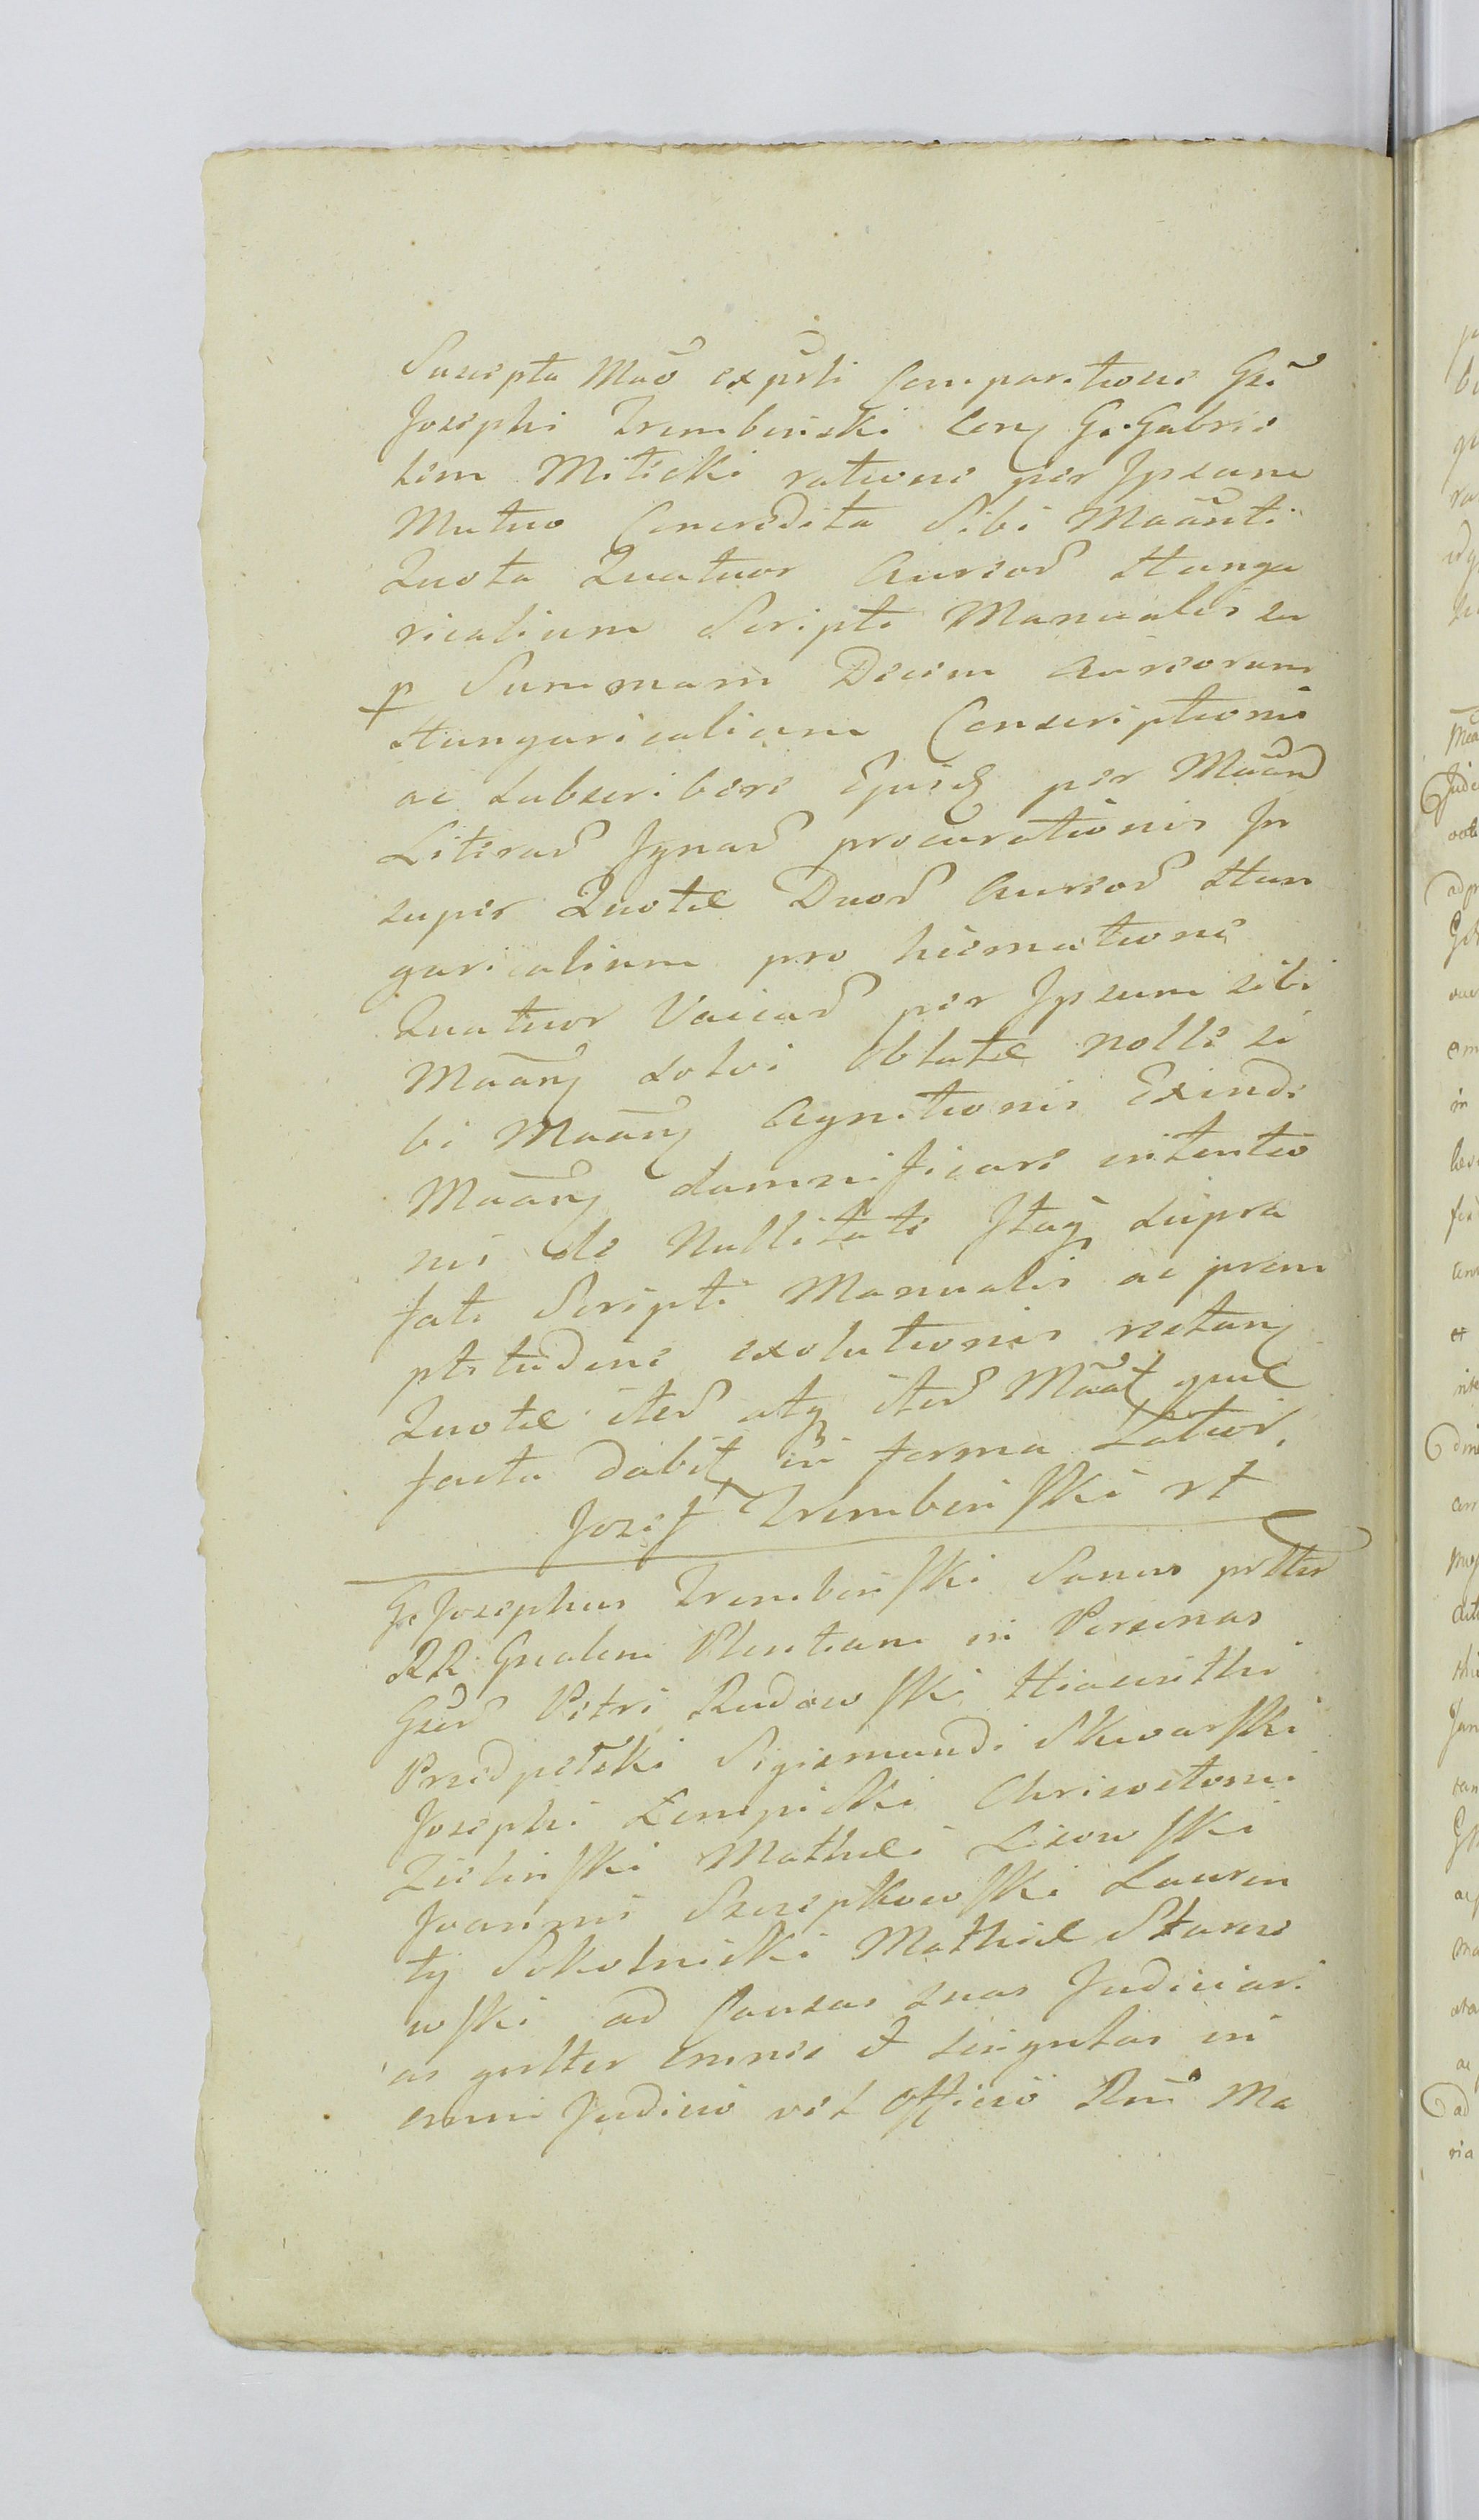 Suscepta Mao expsti Comparitione Gsi
Josephi Trembinski Conq G. Gabrie
lem Milicki ratione per Ipsum
Mutuo Concredita Sibi Maanti
Quota Quatuor Aureor Hunga
ricalium Scripti Manualis su
p Summam Decem Aureorum
Hungaricalium Conscriptione
ac subscribere Ejusq per Maan
Literar Ignar procurationis In
super Quotæ Duor Aureor Hun
garicalium pro hiematione
Quatuor Vaccar per Ipsum sibi
Maanq solvi oblatæ nolle si
bi Maanq Agnitionis Exinde
Maanq damnificare intentio
ne de Nullitate Itaq supra
fati Scripti Manualis ac prom
ptitudine exolutionis restanq
Quotæ iter atq iter Maat quæ
facta dabit in forma Latior.
Jozef Trembinski rt
G. Josephus Trembinski Sanus prtter
RR. Gnalem Plentiam in Personas
Gser Petri Rudowski Hiacinthi
Przedpełski Sigismundi Skwarski
Josephi Łempicki Chrisostomi
Zielinski Mathei Lisowski
Joannis Szczepkowski Lauren
ty Sokolnicki Mathiæ Staro
wski ad Causas suas Judiciari
as gnlter omnes et singulas in
omni Judicio vel Officio Rni Ma